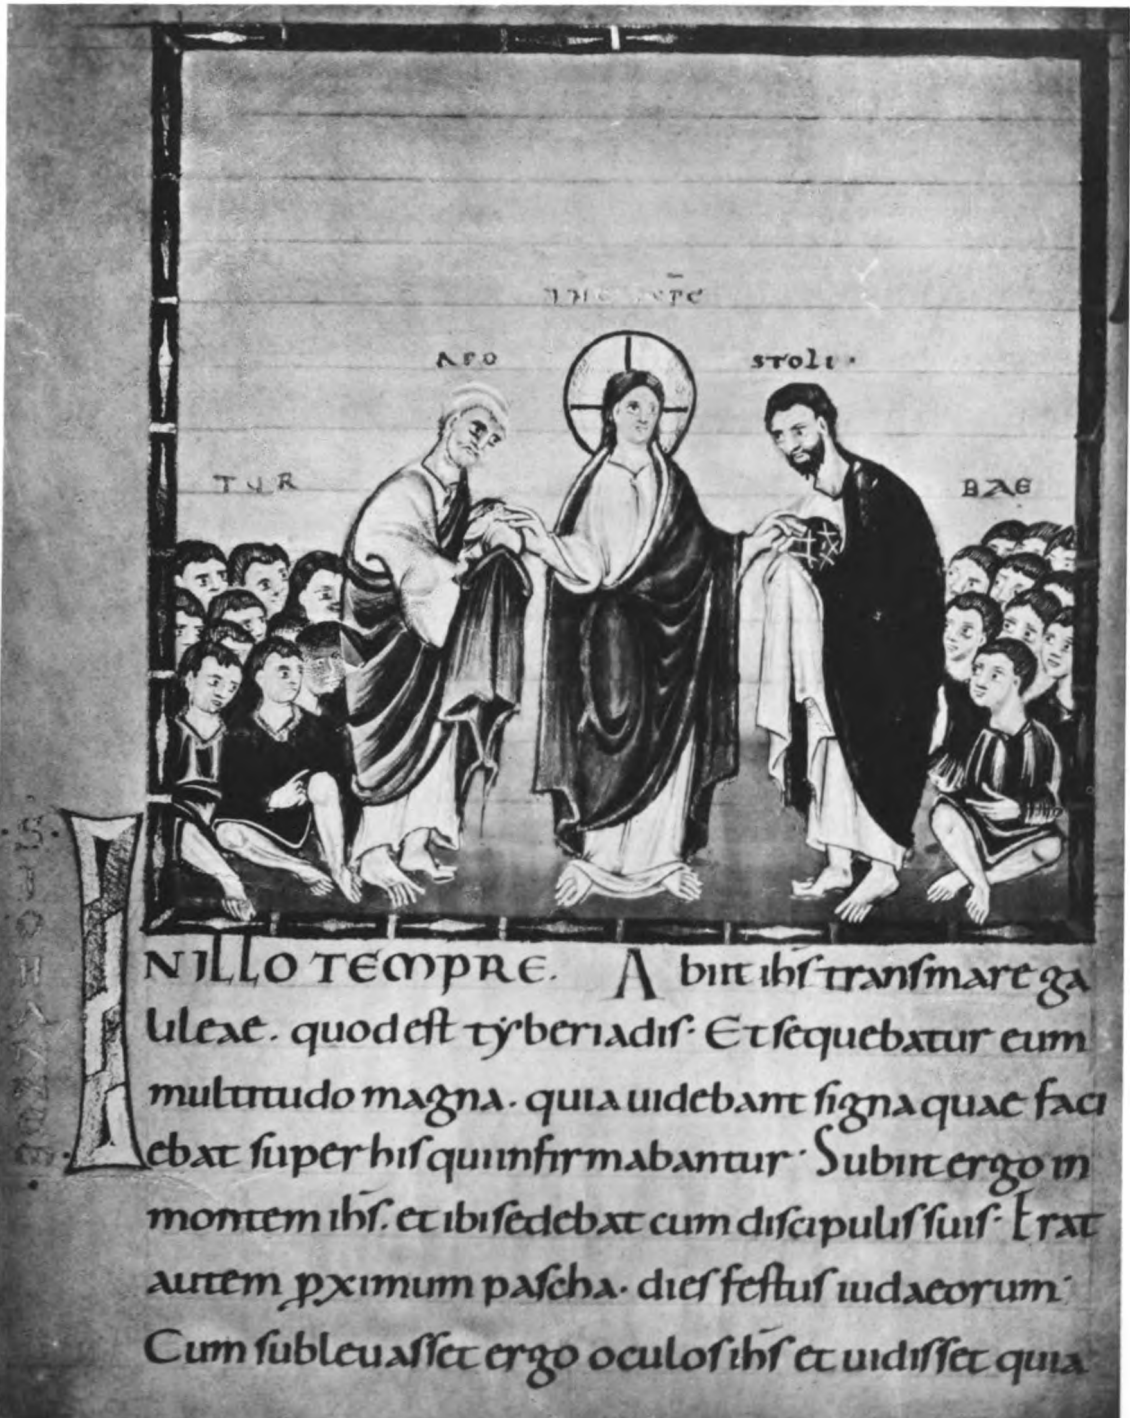 IHC XPC
APO STOLI·
TUR BAE
S IOHANNEM
IN ILLO TEMPRE. Abiit ihs̄ trans mare ga
lileae. quod est tẏberiadis· Et sequebatur eum
multitudo magna. quia uidebant signa quae faci
ebat super his qui infirmabantur· Subiit ergo in
montem ihs̄. et ibi sedebat cum discipulis suis· Erat
autem ꝓximum pascha. dies festus iudaeorum·
Cum subleuasset ergo oculos ihs̄ et uidisset quia